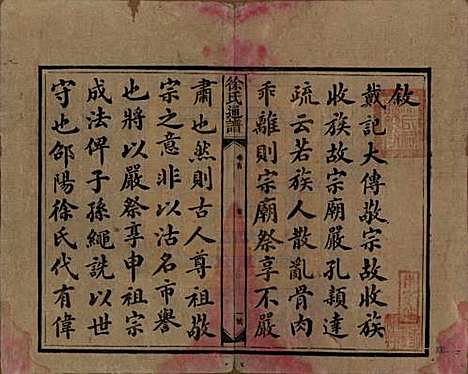 敘
戴記大傳敬宗故收族
收族故宗廟嚴孔穎達
疏云若族人散亂骨肉
乖離則宗廟祭享不嚴
徐氏通譜
卷首
肅也然則古人尊祖敬
宗之意非以沽名市譽
也將以嚴祭享申祖宗
成法俾子孫繩說以世
守也邵陽徐氏代有偉